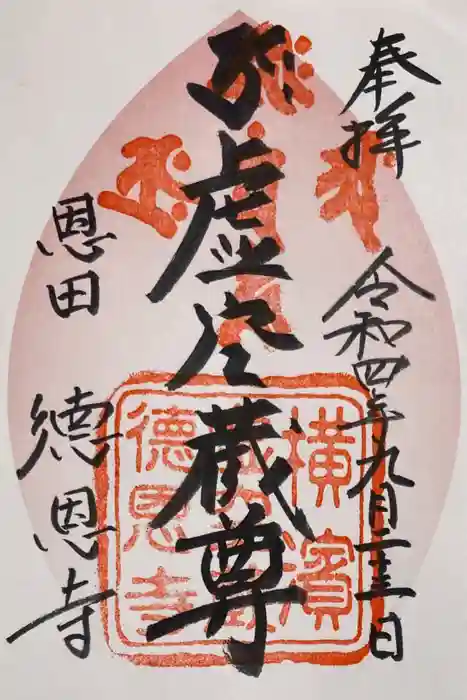 奉拝
令和四年九月二十三日
虚空蔵尊
恩田
徳恩寺
横濱
徳恩寺